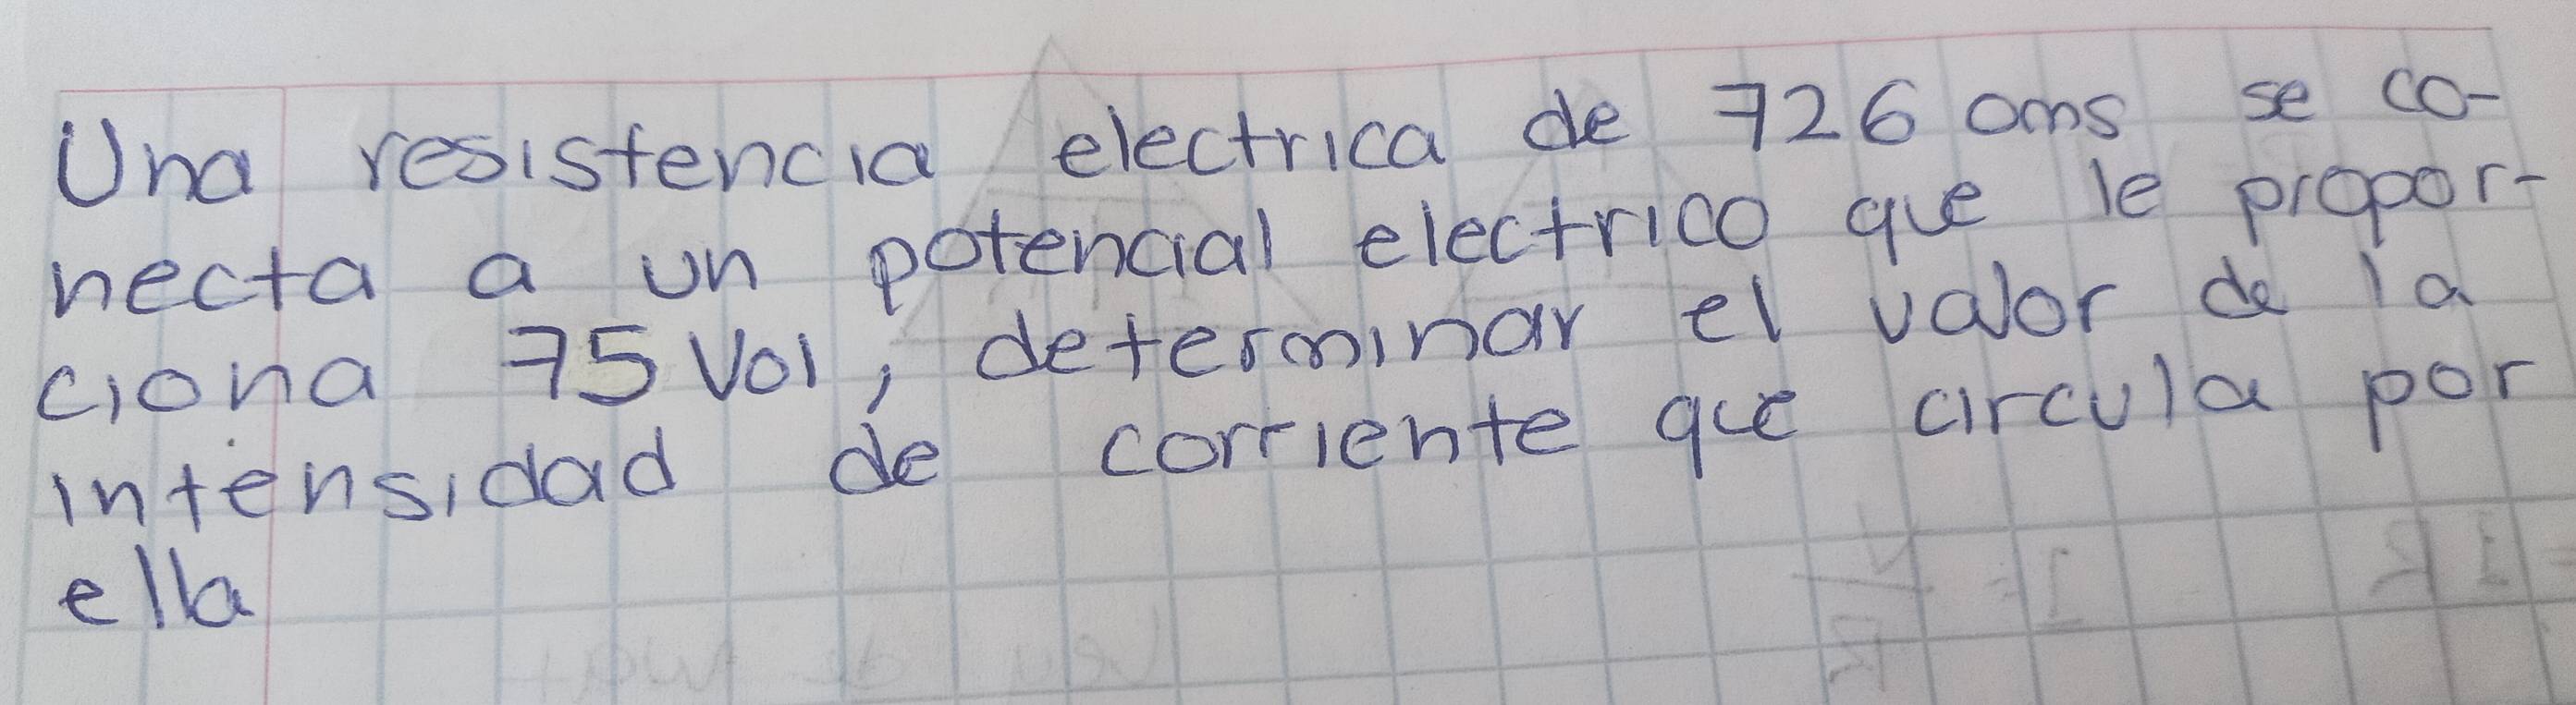 Una resistencia electrica de 726 oms se co-
necta a un potencial electrico que le propor-
ciona 75 Vol, determinar el valor de la
intensidad de corriente que circula por
ella